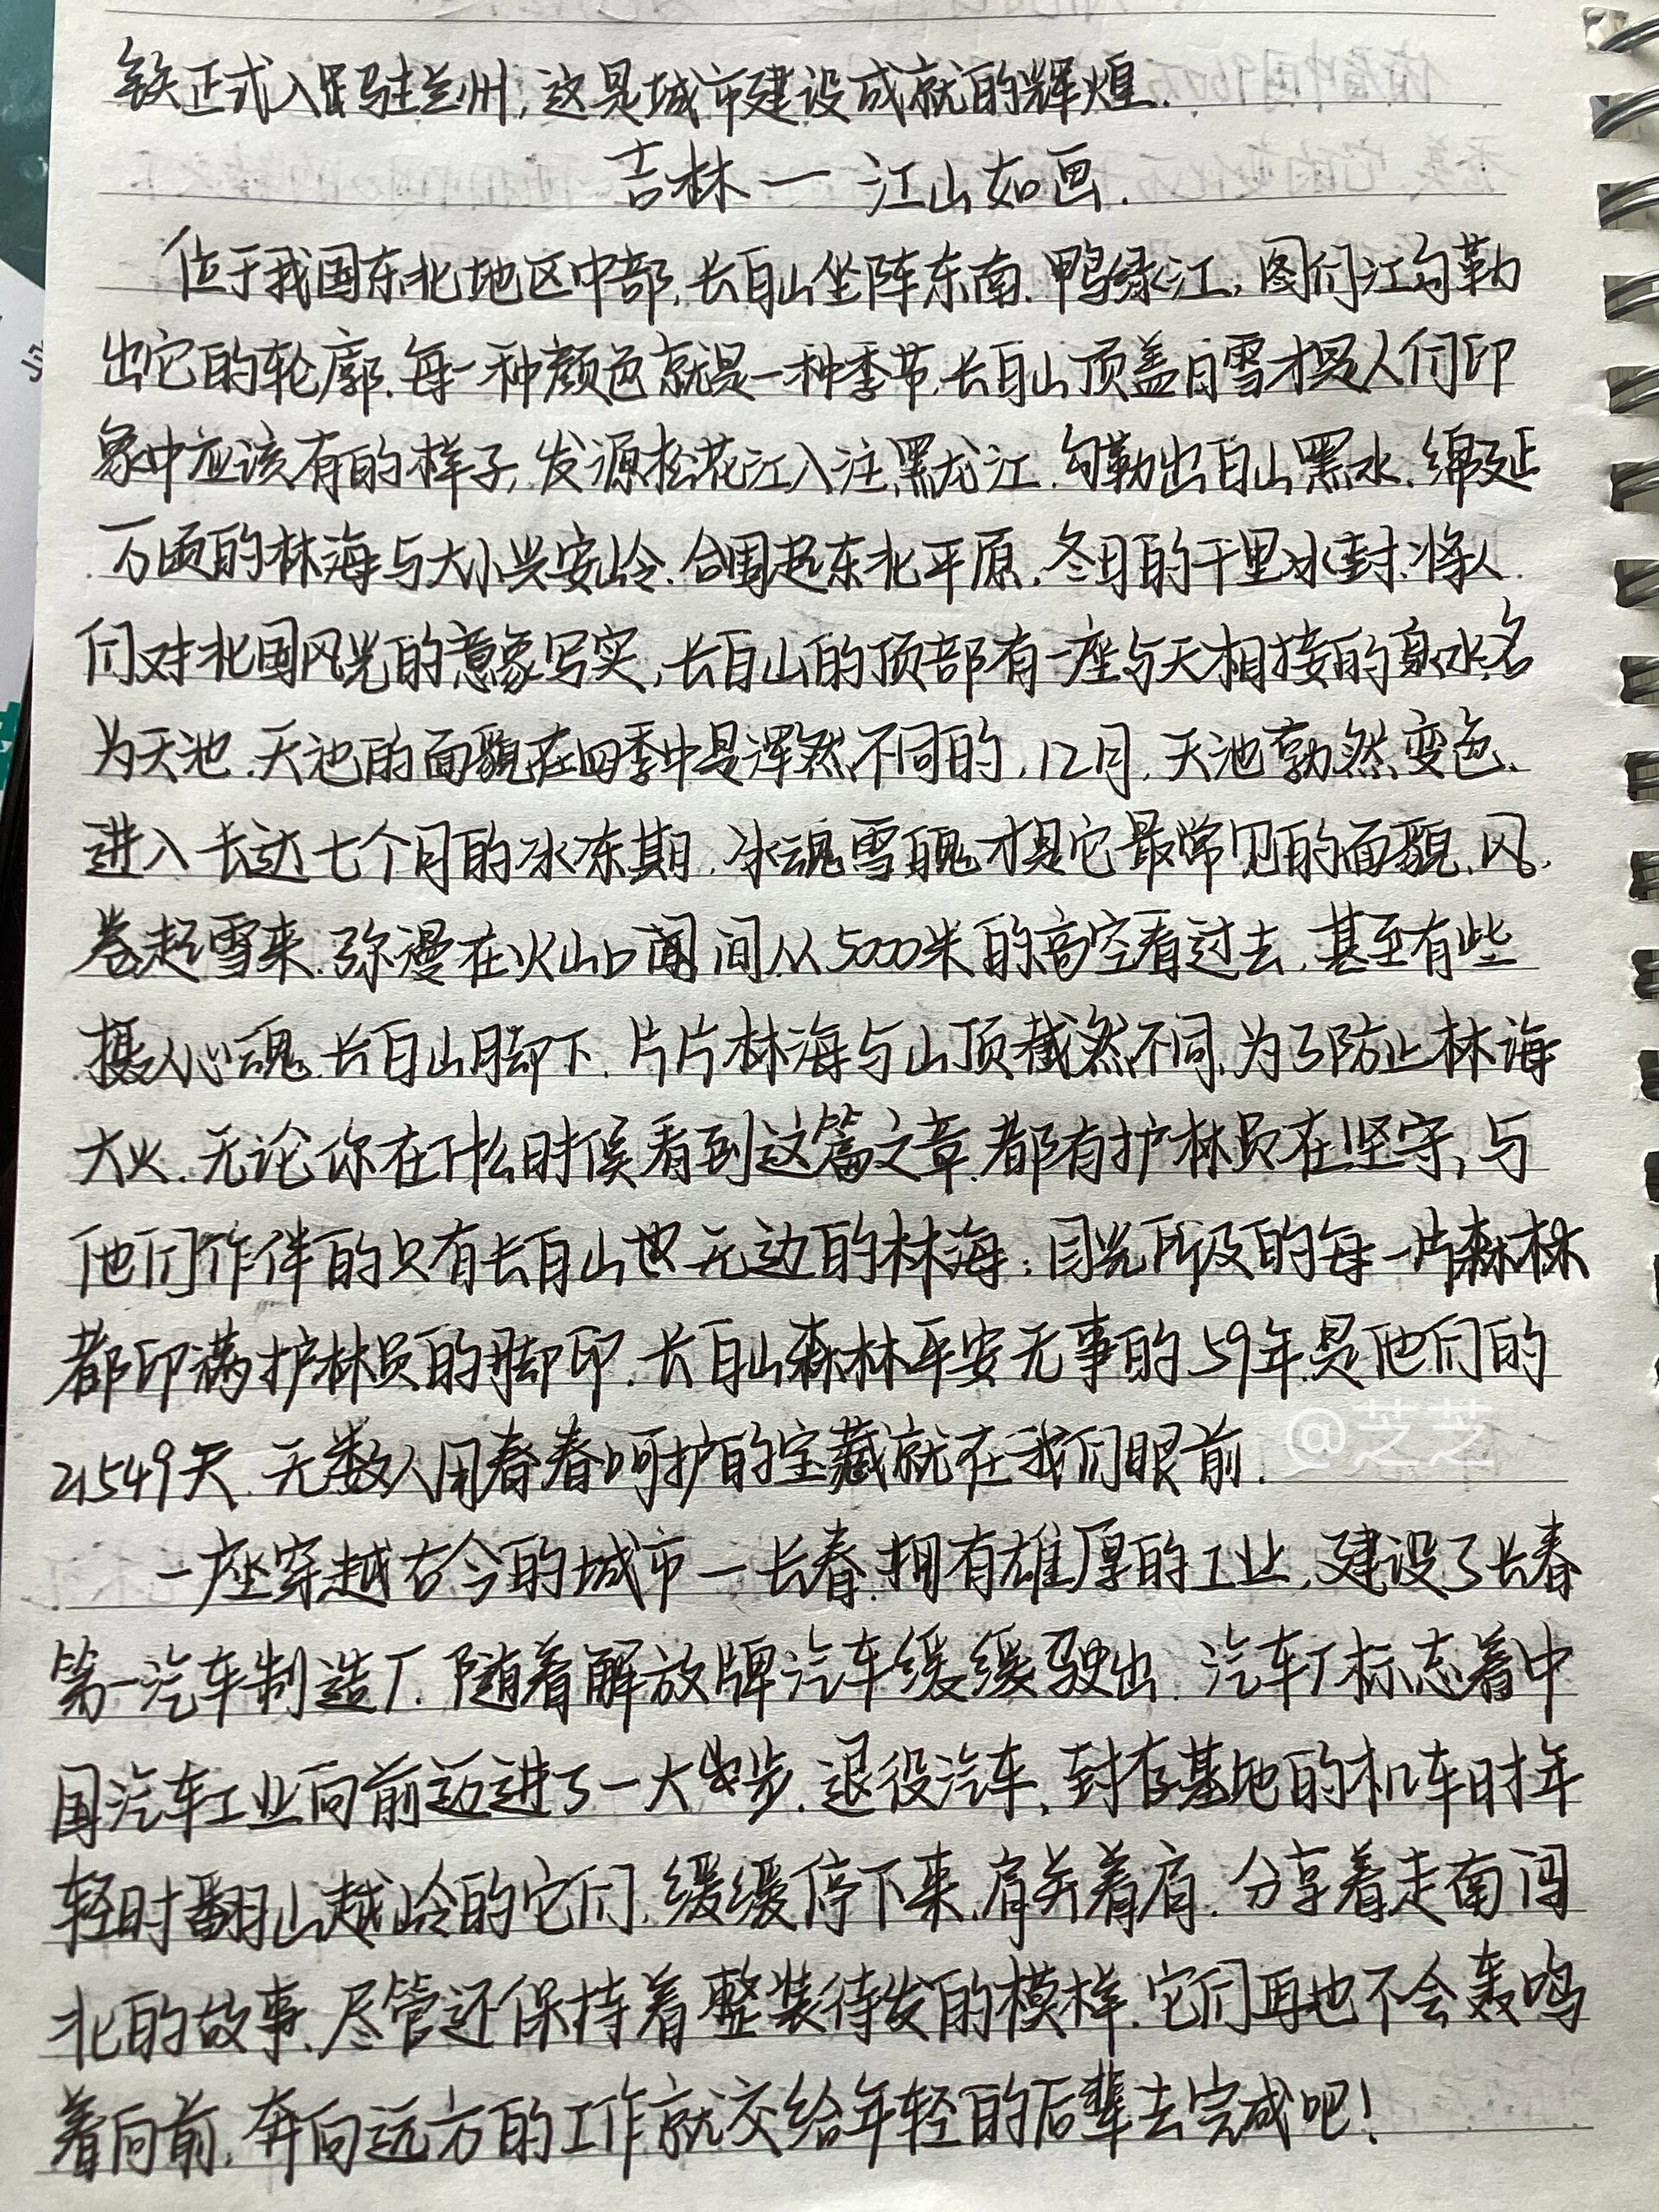 铁正式入驻兰州，这是城市建设成就的辉煌.
吉林一江山如画.
位于我国东北地区中部,长白山坐阵东南.鸭绿江,图们江勾勒
出它的轮廓.每一种颜色就是一种季节,长白山顶盖白雪才是人们印
象中应该有的样子,发源松花江入注黑龙江.勾勒出白山黑水.绵延
万顷的林海与大小兴安岭.合围起东北平原.冬日的千里冰封.将人
们对北国风光的意象写实,长白山的顶部有一座与天相接的泉水名
为天池.天池的面貌在四季中是浑然不同的.12月.天池勃然变色.
进入长达七个月的冰冻期.冰魂雪魄才是它最常见的面貌.风
卷起雪来.弥漫在火山口间从5000米的高空看过去.甚至有些
摄人心魂.长白山脚下.片片林海与山顶截然不同.为了防止林海
大火.无论你在什么时候看到这篇文章.都有护林员在坚守,与
他们作伴的只有长白山无边的林海;目光所及的每一片森林
都印满护林员的脚印.长白山森林平安无事的59年.是他们的
21549天.无数人用春春呵护的宝藏就在我们眼前.
@芝芝
一座穿越古今的城市一长春.拥有雄厚的工业.建设了长春
第一汽车制造厂.随着解放牌汽车缓缓驶出.汽车厂标志着中
国汽车工业向前迈进了一大步.退役汽车.封存基地的机车时年
轻时翻山越岭的它们.缓缓停下来.肩并着肩.分享着走南闯
北的故事.尽管还保持着整装待发的模样.它们再也不会轰鸣
着向前.奔向远方的工作就交给年轻的后辈去完成吧!